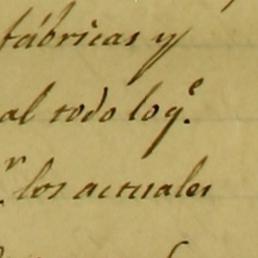 fábricas y
al todo lo q.e
.r los actuales